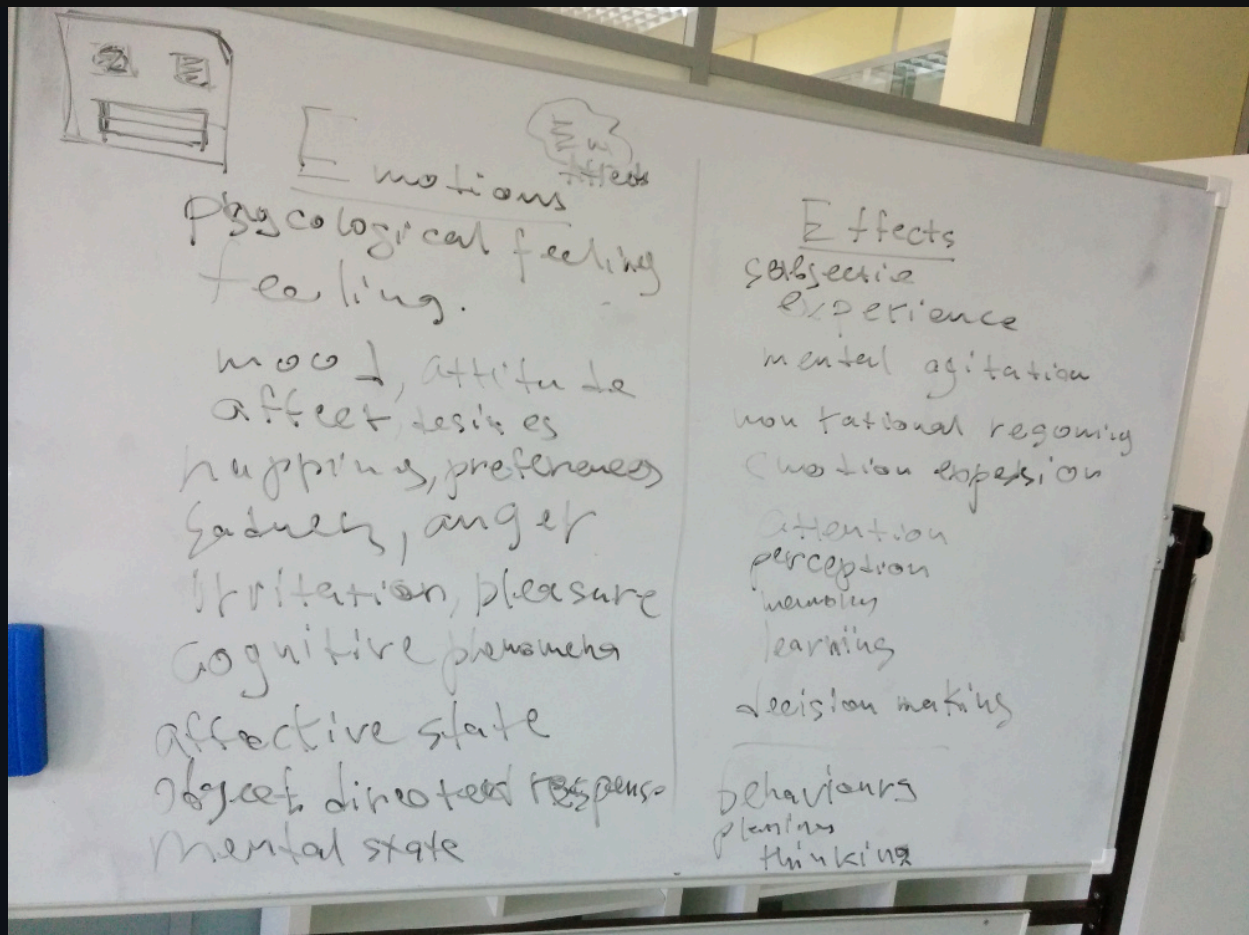 Emotions
effects
psycological feeling
feeling.
mood, attitude
affect, desires
happiny, preferences
sadness, anger
irritation, pleasure
cognitive phenomena
affective state
object directed response
mental state
Effects
experience
mental agitation
non rational
emotion
attention
perception
learning
decision making
behaviours
planing
thinking